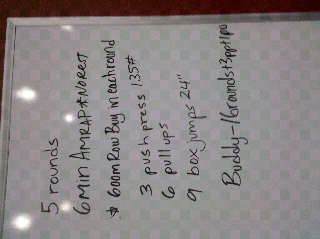 5 rounds
6 min AMRAP * NO REST
* 600m Row Buy in each round
3 push press 135#
6 pull ups
9 box jumps 24"
Buddy - 16 rounds + 3 pp + 1 pu